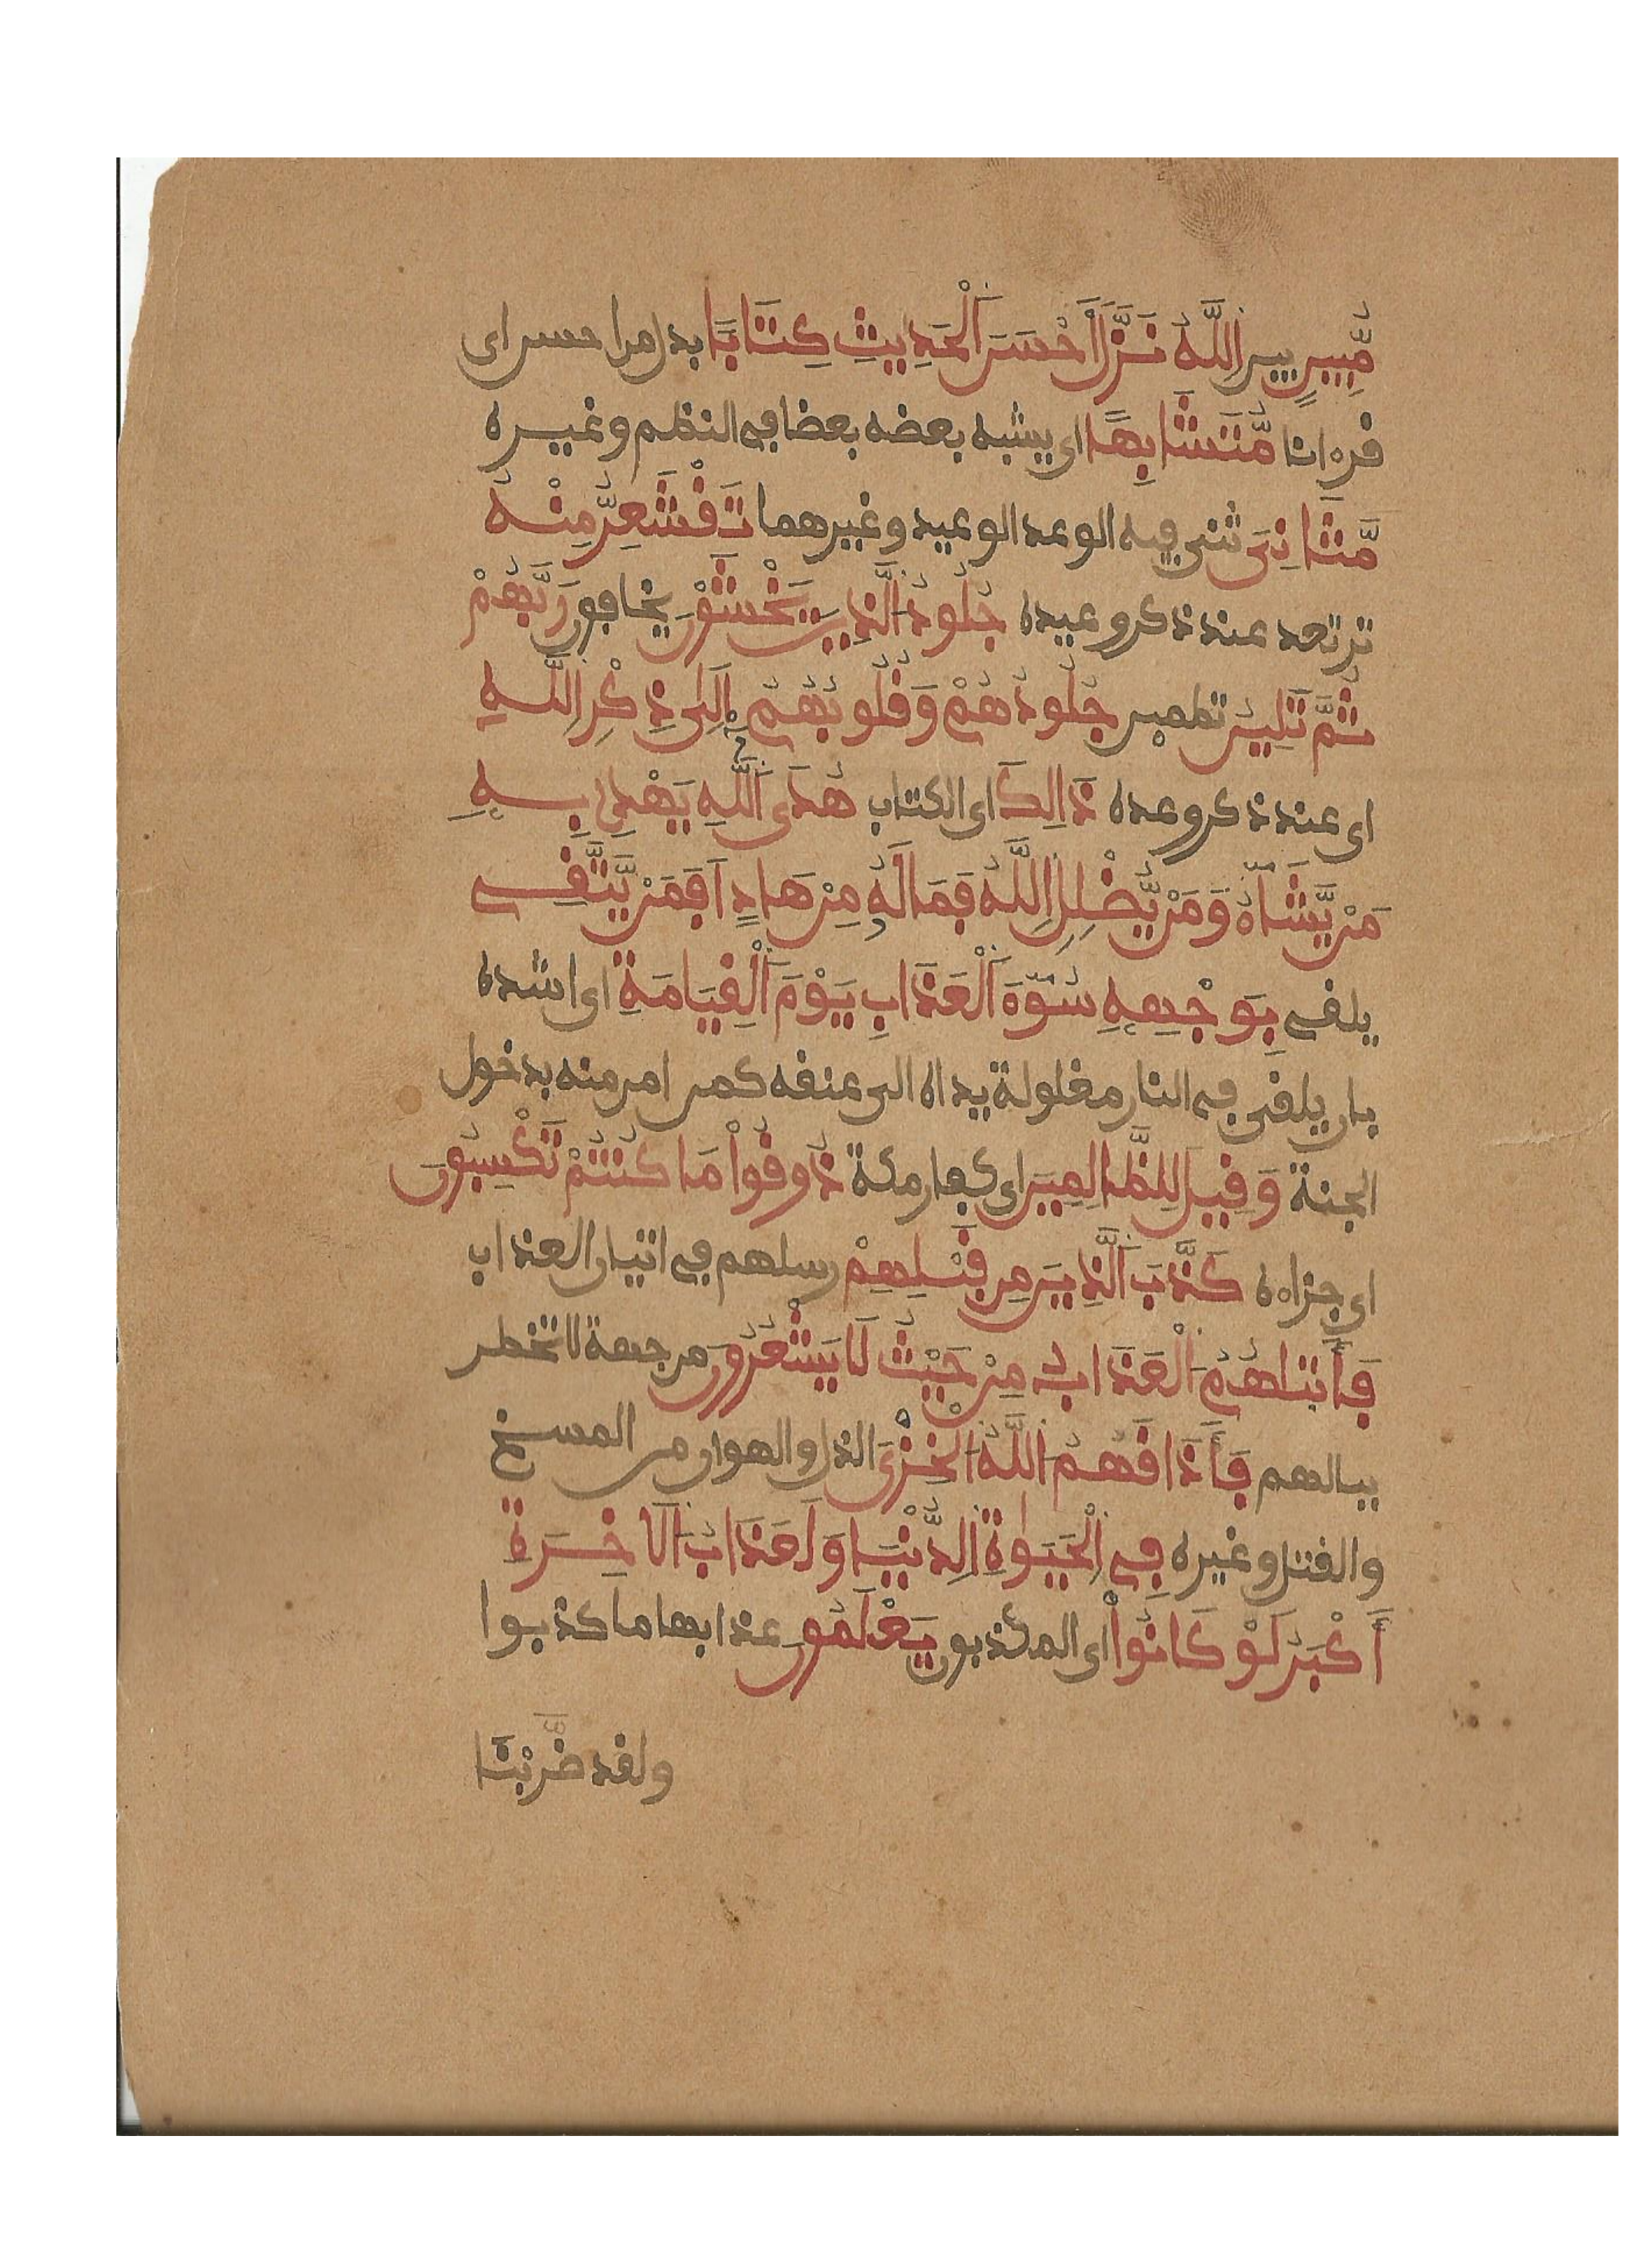 مُّبِينٍ بين اَللَّهُ نَزَّلَ أَحْسَنَ اَلْحَدِيثِ كِتَاباً بدل من احسن اى
قرءانا مُّتَشَابِهاً اى يشبه بعضه بعضا في النظم وغيره
مَّثَانِيَ ثنى فيه الوعد الوعيد وغيرهما تَقْشَعِرُّ مِنْهُ
ترتعد عند ذكر وعيده جُلُودُ اَلذِينَ يَخْشَوْنَ يخافون رَبَّهُمْ
ثُمَّ تَلِينُ تطمئن جُلُودُهُمْ وَقُلُوبُهُمْ إِلَىٰ ذِكْرِ اِللَّهِ
اى عند ذكر وعده ذَالِكَ اى الكتاب هُدَى اَللَّهِ يَهْدِى بِهِ
مَنْ يَّشَآءُ وَمَنْ يُّضْلِلِ اِللَّهُ فَمَا لَهُ مِنْ هَادٍ اَفَمَنْ يَّتَّقِى
يلقى بِوَجْهِهِ سُوٓءَ اَلْعَذَابِ يَوْمَ اَلْقِيَامَةِ اى اشده
بان يلقى في النار مغلولة يداه الى عنقه كمن امن منه بدخول
الجنة وَقِيلَ لِلظَّالِمِينَ اى كفار مكة ذُوقُواْ مَا كُنتُمْ تَكْسِبُونَ
اى جزاءه كَذَّبَ اَلذِينَ مِن قَبْلِهِمْ رسلهم في اتيان العذاب
فَأَتَاهُمُ اَلْعَذَابُ مِنْ حَيْثُ لَا يَشْعُرُونَ من جهة لا تخطر
ببالهم فَأَذَاقَهُمُ اَللَّهُ اَلْخِزْيَ الذل والهوان من المسخ
والقتل وغيره فِي اِلْحَيَوٰةِ اِلدُّنْيَا وَلَعَذَابُ اَلَاخِرَةِ
أَكْبَرُ لَوْ كَانُواْ اى المكذبون يَعْلَمُونَ عذابها ما كذبوا
ولقد ضَّرَبْنَا